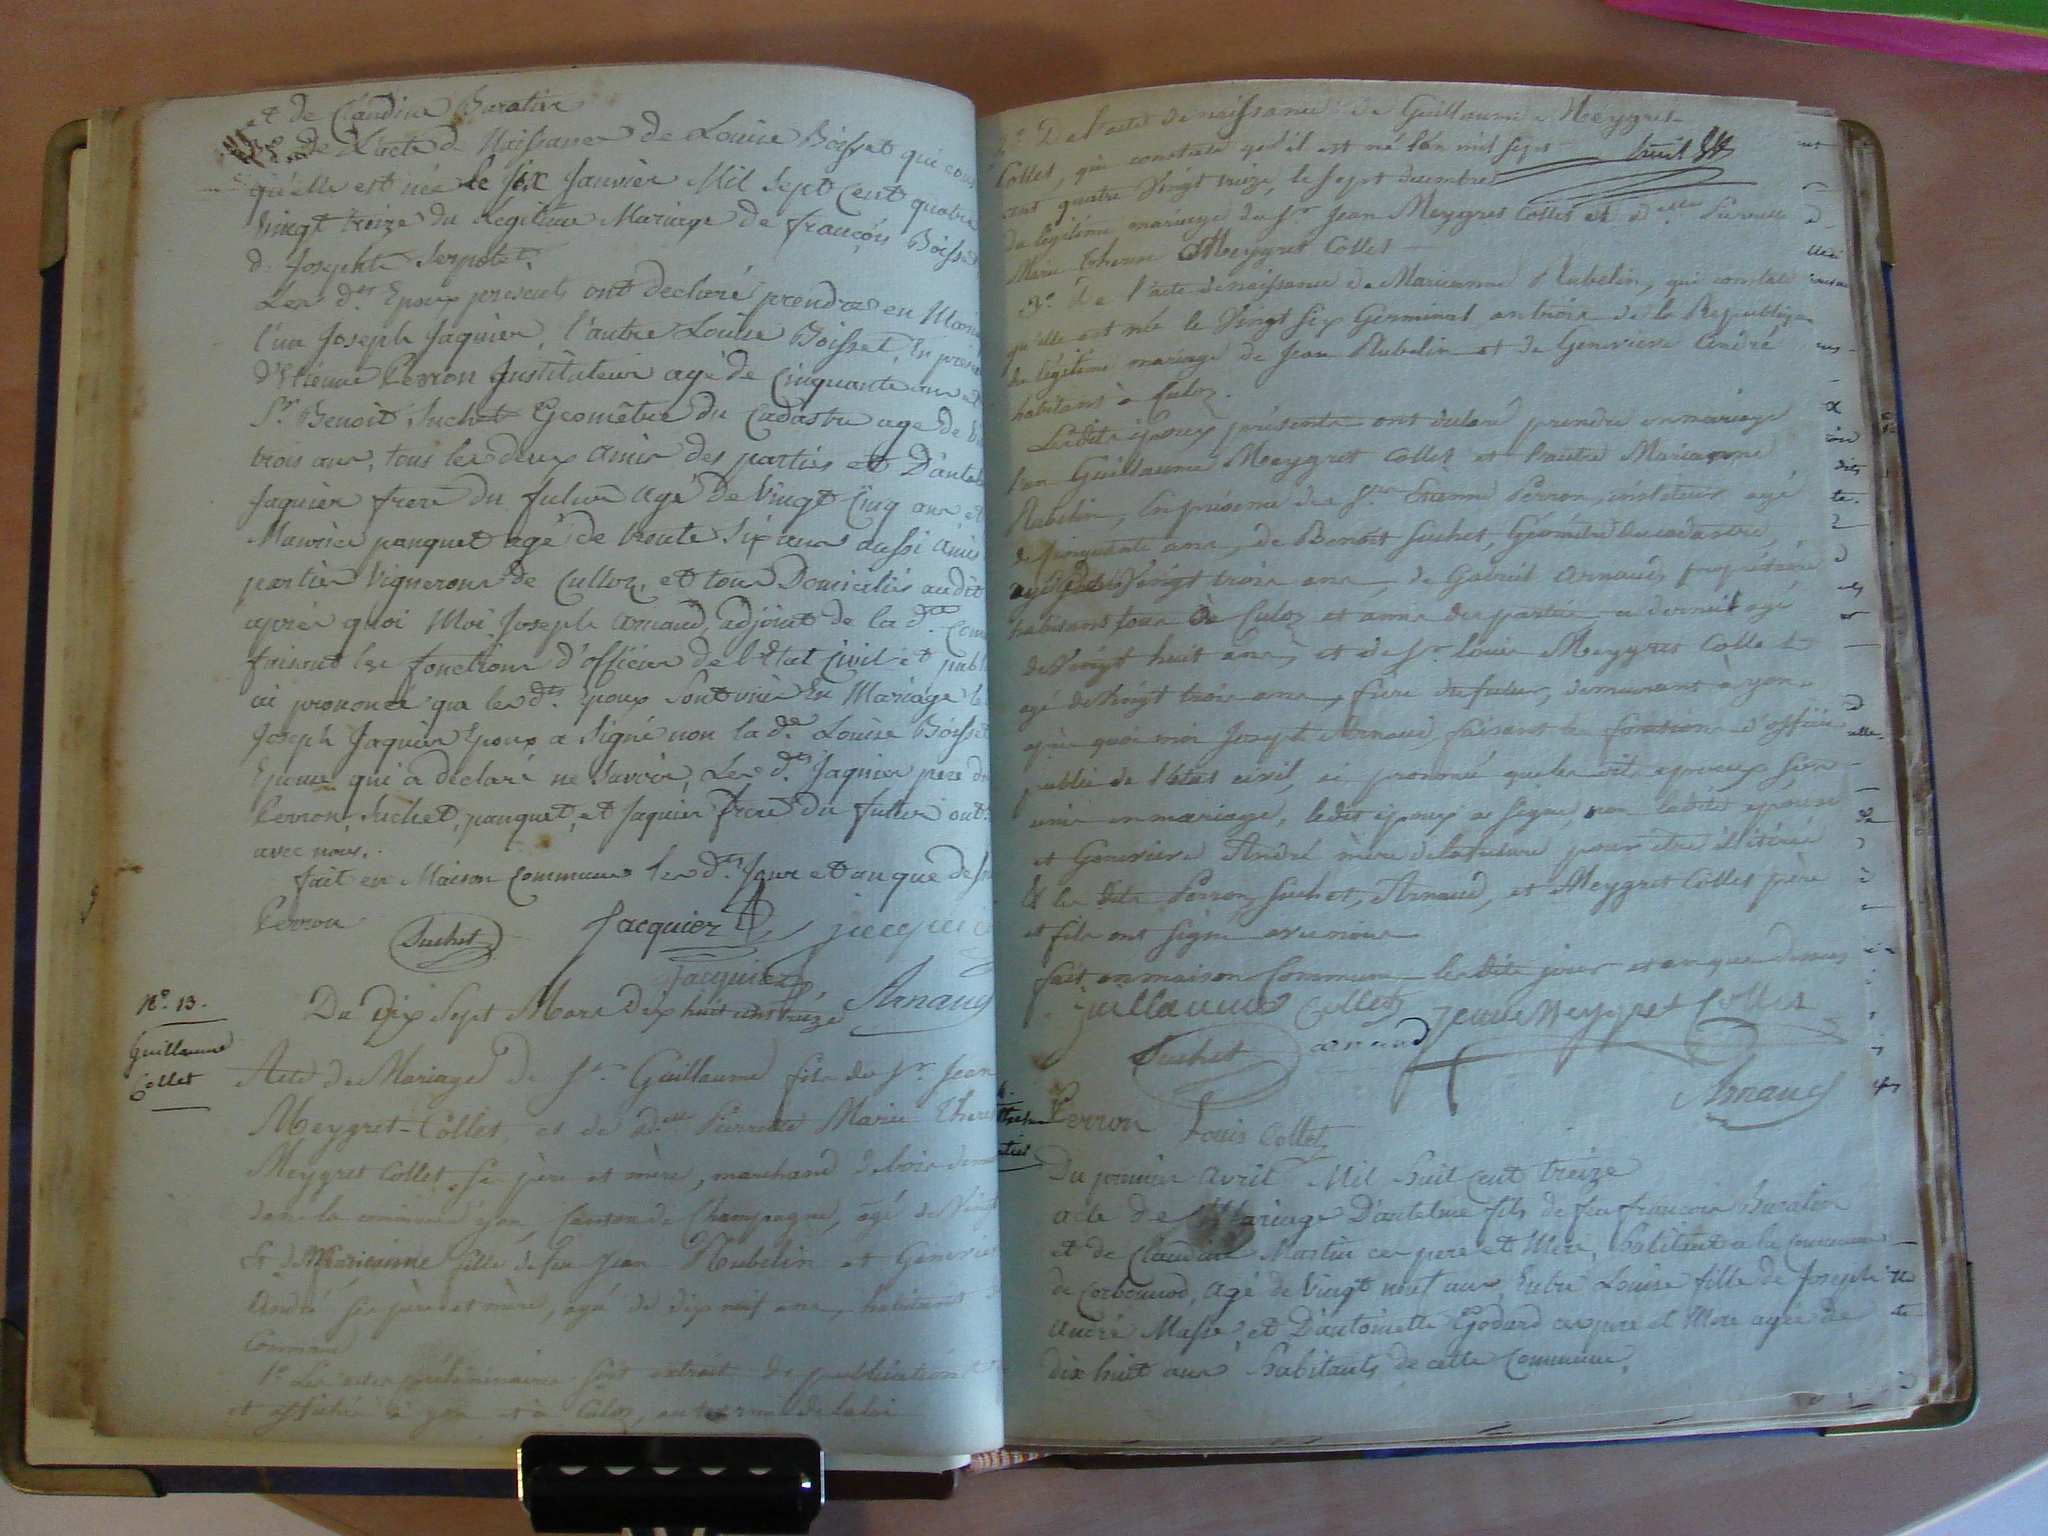 et de Claudine Buratin
3º de L'acte de Naissance de Louise Boisset qui cons
qu'elle est née le six Janvier Mil Sept Cent quatre
Vingt treize du Légitime Mariage de françois Boisset
de Josephte Serpolet.
Les dts Epoux presents ont declaré prendre en Maria
l'un Joseph Jaquier, l'autre Louise Boisset, En prese
d'Etienne Perron Instituteur agé de Cinquante ans et
Sr Benoit Suchet Geomêtre du Cadastre age de Vin
trois ans, tous les deux amis des parties et D'antel
Jaquier frere du futur agé de Vingt Cinq ans et
Maurice panquet agé de trente Six ans aussi amis
parties Vignerons de Culloz, et tous Domiciliés audit
après quoi Moi Joseph Arnaud, adjoint de la de Com
faisant les fonctions d'officier de l'Etat civil et publ
ai prononcé que les dts Epoux Sont unis En Mariage le
Joseph Jaquier Epoux a Signé non la de Louise Boisset
Epouse qui a declaré ne Savoir, Les dts Jaquier pere du
Perron, Suchet, panquet, et Jaquier frere du futur ont
avec nous.
fait en Maison Commune les dts Jour et an que dess
Perron Suchet Jacquier
Jacquier
Nº 13.
Du Dix Sept Mars Dix huit cent treize Arnaud
Guillaume
Collet
Acte de Mariage de Sr Guillaume fils du Sr Jean
Meygret-Collet, et de delle Pierrette Marie There
Meygret Collet, ses père et mère, marchand de bois deme
dans la commune d'yon, Canton de Champagne, âgé de Vingt
Et de Marianne fille de feu Jean Aubelin et Geneviev
André ses père et mère, agée de dix neuf ans, habitants
Commune
1º Les actes préliminaires sont extrait de publication
et affiche à yon et à Culoz, aux termes de la loi
2º De l'acte de naissance de Guillaume Meygret
Collet, qui constate qu'il est né l'an mil sept
cent quatre Vingt treize, le Sept decembre
du légitime mariage du Sr Jean Meygret Collet et delle Pierrette
Marie therese Meygret Collet
3º De l'acte de naissance de Marianne Aubelin, qui constate
qu'elle est née le Vingt six Germinal an trois de la Republique
du légitime mariage de Jean Aubelin et de Genevieve André
habitans à Culoz.
Lesdits époux présents ont declaré prendre en mariage
l'un Guillaume Meygret Collet et l'autre Marianne
Aubelin, En présence des Srs Etienne Perron, instituteur agé
de cinquante ans, de Benoit Suchet, Géométre du cadastre,
Vingt trois ans, de Gabriel Arnaud propriétaire
habitans tous de Culoz et amis des parties, ce dernier agé
de Vingt huit ans, et de Sr Louis Meygret Collet
agé de Vingt trois ans, frère du futur, demeurant à yon.
après quoi moi Joseph Arnaud, faisant les fonctions d'officier
public de l'état civil, ai prononcé que les dits epoux sont
unis en mariage, ledit époux a signé, non ladite epouse
et Genevieve André mère de la future pour être illitérée
Et les dits Perron, Suchet, Arnaud, et Meygret Collet père
et fils ont signé avec nous
fait en maison Commune les dits jour et an que dessus
Guillaume Collet Jean Meygret Collet
Suchet arnaud
Arnaud
Perron Louis Collet
Du premier avril Mil huit cent treize
acte de Mariage D'antelme fils de feu francois Buratin
et de Claudine Martin ces pere et Mere, habitant a la Commune
de Corbonod, agé de Vingt neuf ans, Entre Louise fille de Joseph
André Masse et D'antoinette Godard ces pere et Mere agée de
dix huit ans habitants de cette Commune.